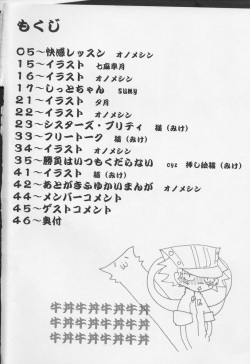 もくじ
05～快感レッスン オノメシン
15～イラスト 七瀬皐月
16～イラスト オノメシン
17～しっとちゃん sumy
21～イラスト 夕月
22～イラスト オノメシン
23～シスターズ・プリティ 猫(みけ)
33～フリートーク 猫(みけ)
34～イラスト オノメシン
35～勝負はいつもくだらない cyc 挿し絵猫(みけ)
41～イラスト 猫(みけ)
42～あとがきふゆかいまんが オノメシン
44～メンバーコメント
45～ゲストコメント
46～奥付
牛丼牛丼牛丼牛丼牛丼
牛丼牛丼牛丼牛丼牛丼
牛丼牛丼牛丼牛丼牛丼